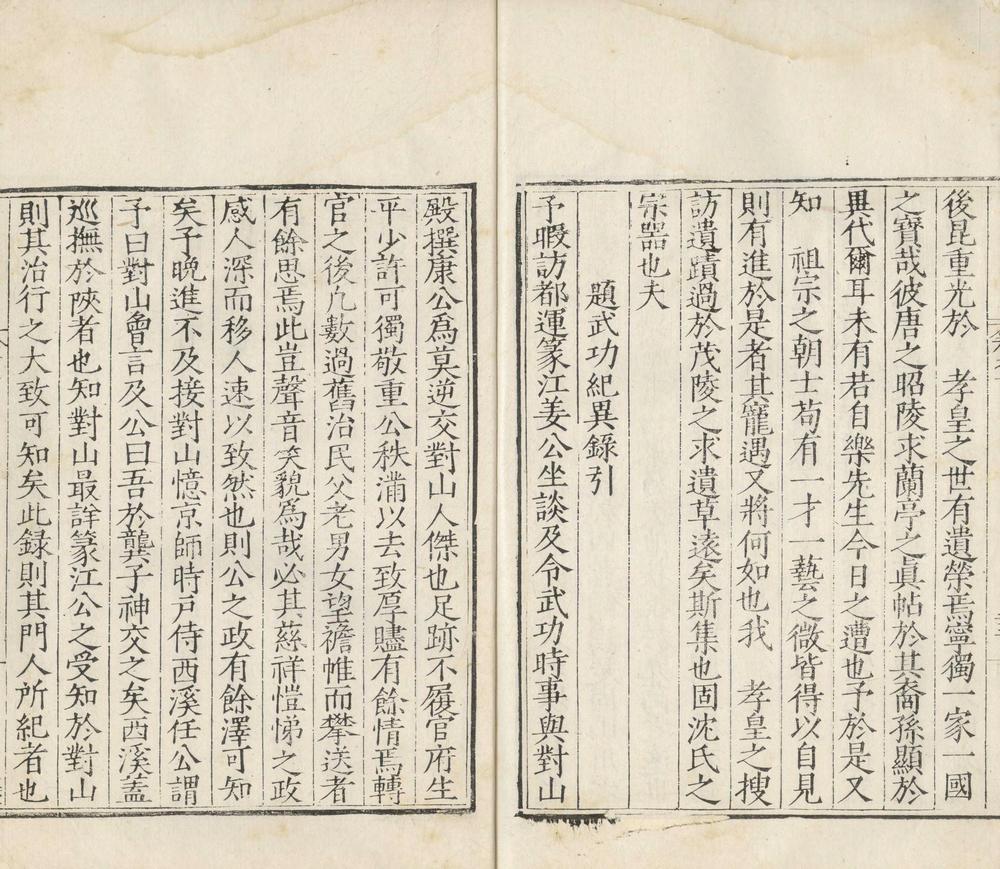 後昆重光於　孝皇之世有遺榮焉寧獨一家一國
之寶哉彼唐之昭陵求蘭亭之眞帖於其裔孫顯於
異代爾耳未有若自樂先生今日之遭也予於是又
知　祖宗之朝士苟有一才一藝之微皆得以自見
則有進於是者其寵遇又將何如也我　孝皇之搜
訪遺蹟過於茂陵之求遺草遠矣斯集也固沈氏之
宗器也夫
題武功紀異錄引
予暇訪都運篆江姜公坐談及令武功時事與對山
殿撰康公爲莫逆交對山人傑也足跡不履官府生
平少許可獨敬重公秩滿以去致厚贐有餘情焉轉
官之後凢數過舊治民父老男女望襜帷而攀送者
有餘思焉此豈聲音笑貌爲哉必其慈祥愷悌之政
感人深而移人速以致然也則公之政有餘澤可知
矣予晩進不及接對山憶京師時戸侍西溪任公謂
予曰對山會言及公曰吾於龔子神交之矣西溪蓋
巡撫於陝者也知對山最詳篆江公之受知於對山
則其治行之大致可知矣此録則其門人所紀者也